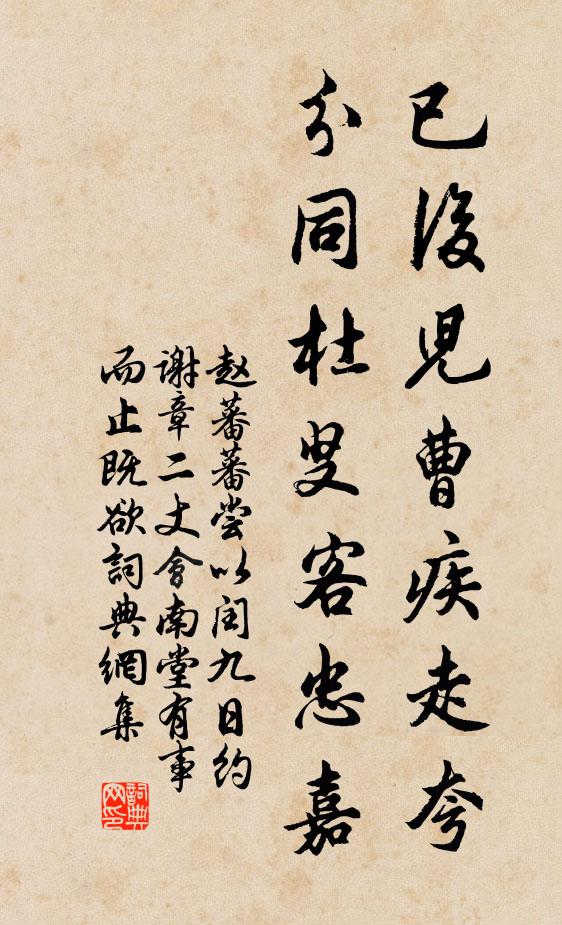 已後児曹疾走夸
分同杜叟客忠嘉
赵蕃蕃尝以闰九日约
谢章二丈会南堂有事
而止既欲詞典網集
詞典网印